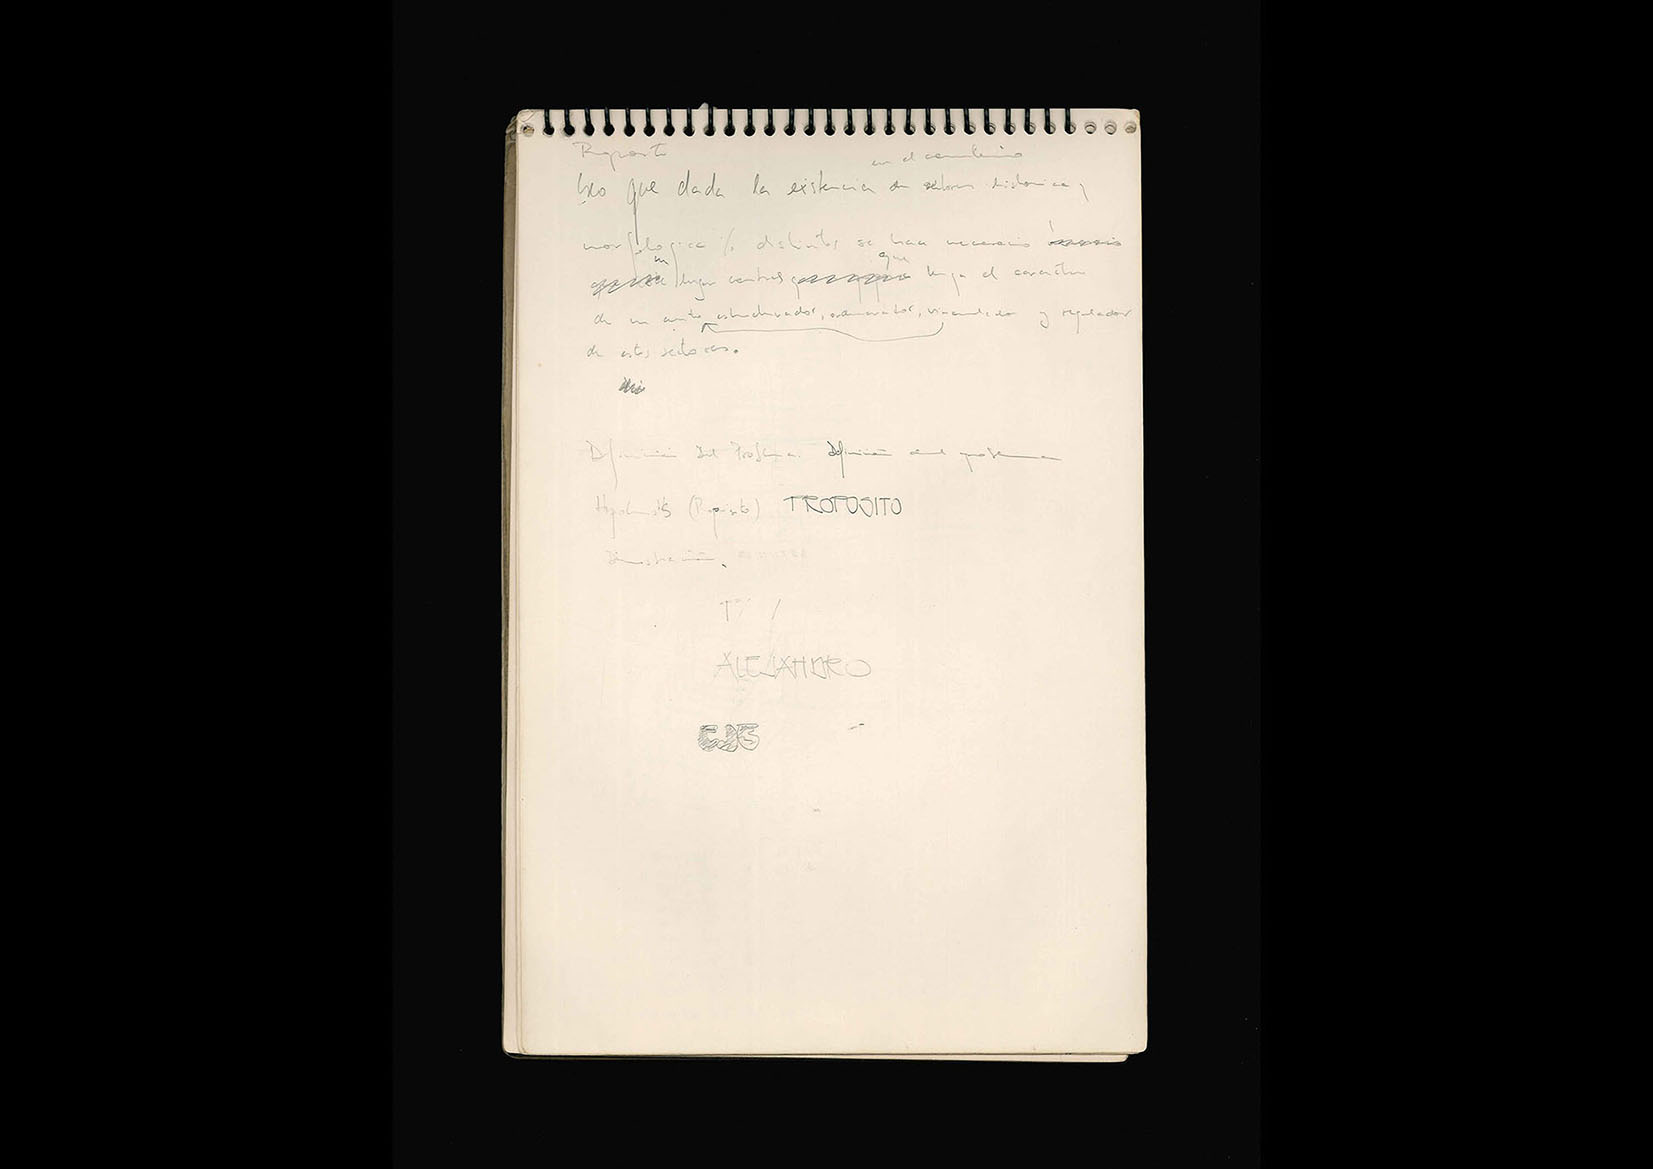 Proposito
en el
Creo que dada la existencia de sectores historica y
morfologica % distintos se hace necesario
un que
lugar central tenga el caracter
de un centro estructurador, ordenador, vinculado y regulador
de estos sectores.
Definicion del Problema. Definicion del problema
Hipotesis (Proposito) PROPOSITO
Demostracion.
ALEJANDRO
EJE